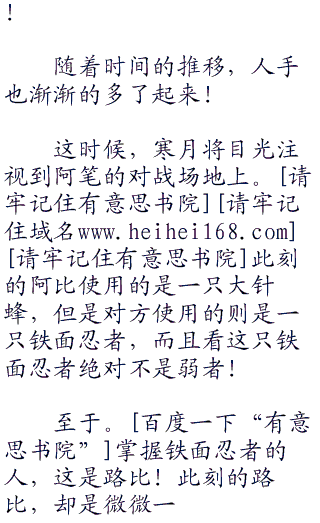 ！
随着时间的推移，人手
也渐渐的多了起来！
这时候，寒月将目光注
视到阿笔的对战场地上。[请
牢记住有意思书院][请牢记
住域名www.heihei168.com]
[请牢记住有意思书院]此刻
的阿比使用的是一只大针
蜂，但是对方使用的则是一
只铁面忍者，而且看这只铁
面忍者绝对不是弱者！
至于。[百度一下“有意
思书院”]掌握铁面忍者的
人，这是路比！此刻的路
比，却是微微一